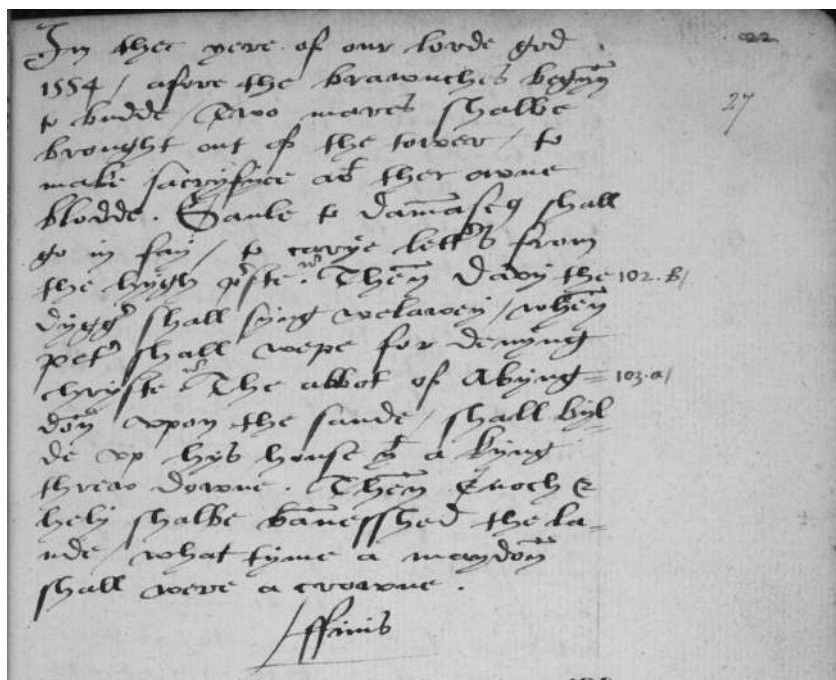 In thee yere of our lorde god
22
1554 / afore the brawnches begyn̄
27
to budde / Two mares shalbe
brought out of the tower / to
make sacryfyce at ther owne
blodde. Saule to dam̄ascꝯ shall
go in fay / to carye lettrs from
the hygh prste. Then̄ Davy the 102.b/
dyggr shall syng welawey / when̄
petr shall wepe for denyng
chryste The abbot of Abyng= 103.a/
don̄ vpon the sande / shall byl-
de vp hys house yt a kyng
threw downe. Then̄ Enoch &
hely shalbe ban̄esshed the la-
nde / what tyme a maydon̄
shall were a crowne.
ffinis